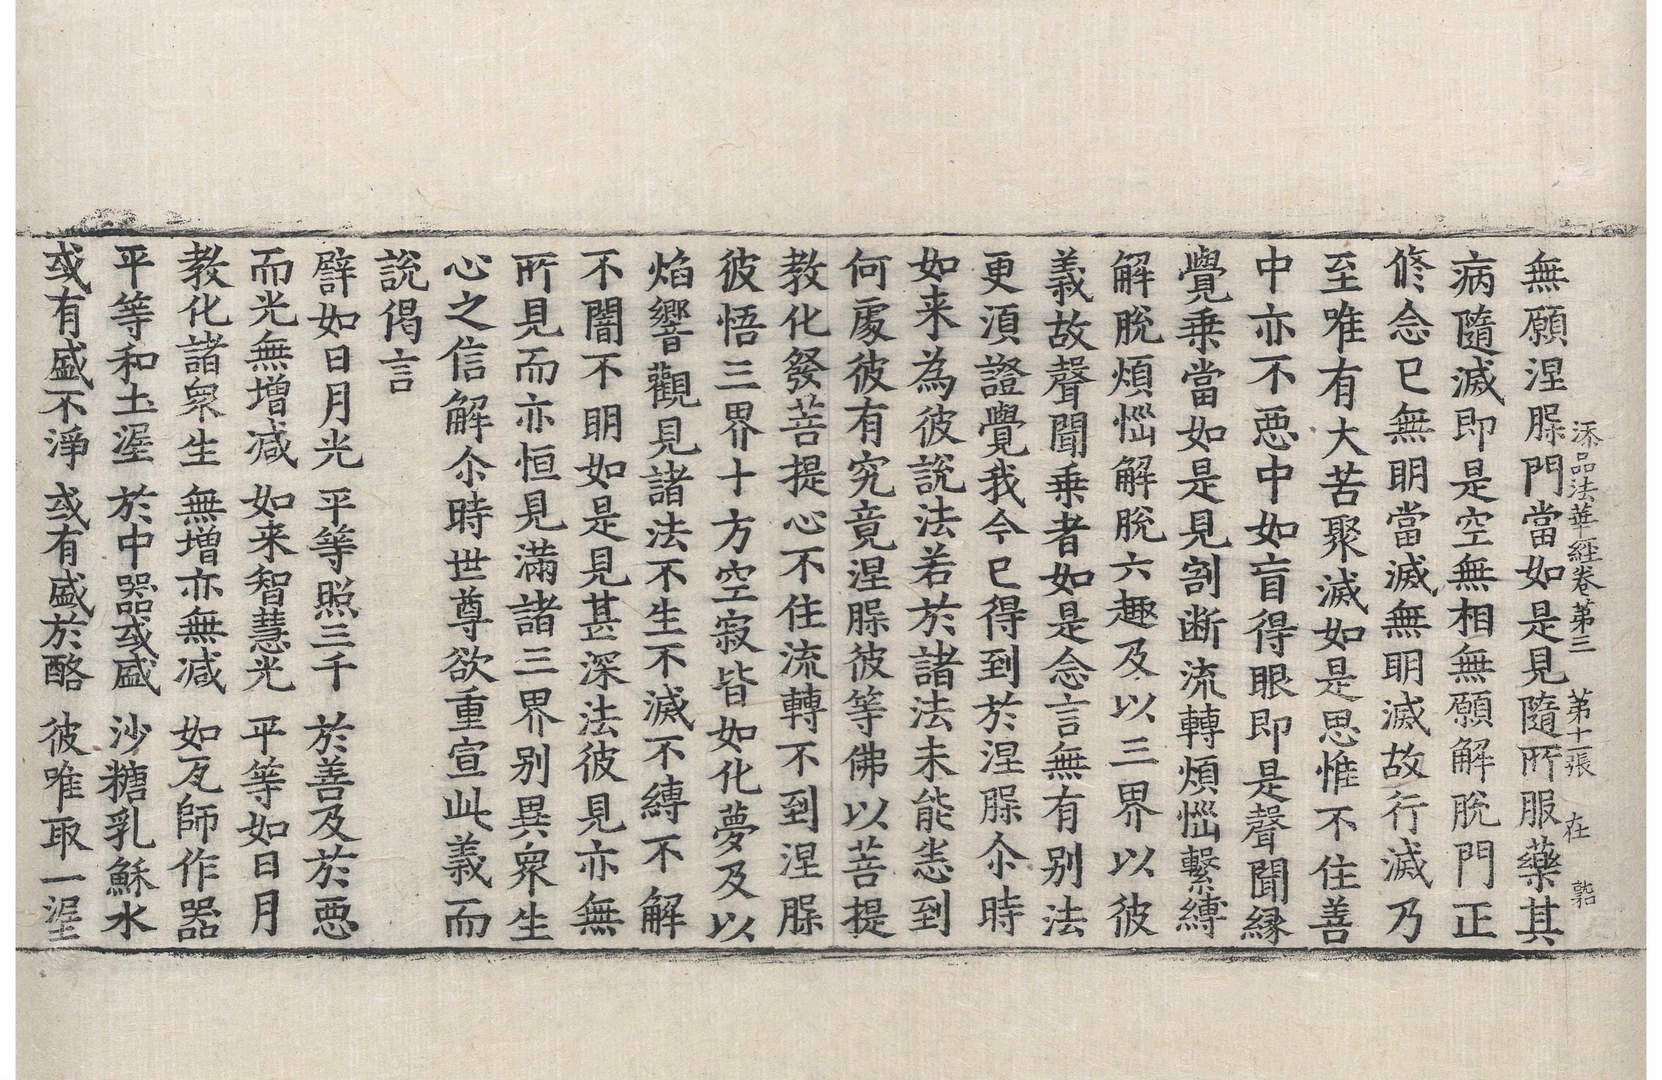 添品法華經卷第三 第十一張 在
無願涅槃門當如是見隨所服藥其
病隨滅即是空無相無願解脫門正
修念已無明當滅無明滅故行滅乃
至唯有大苦聚滅如是思惟不住善
中亦不惡中如盲得眼即是聲聞緣
覺乘當如是見割斷流轉煩惱繫縛
解脫煩惱解脫六趣及以三界以彼
義故聲聞乘者如是念言無有別法
更須證覺我今已得到於涅槃尒時
如来為彼說法若於諸法未能悉到
何處彼有究竟涅槃彼等佛以菩提
教化發菩提心不住流轉不到涅槃
彼悟三界十方空寂皆如化夢及以
焰響觀見諸法不生不滅不縛不解
不闇不明如是見甚深法彼見亦無
所見而亦恒見滿諸三界別異衆生
心之信解尒時世尊欲重宣此義而
說偈言
譬如日月光 平等照三千 於善及於惡
而光無增減 如来智慧光 平等如日月
教化諸衆生 無增亦無減 如瓦師作器
平等和土泥 於中器或盛 沙糖乳穌水
或有盛不淨 或有盛於酪 彼唯取一泥